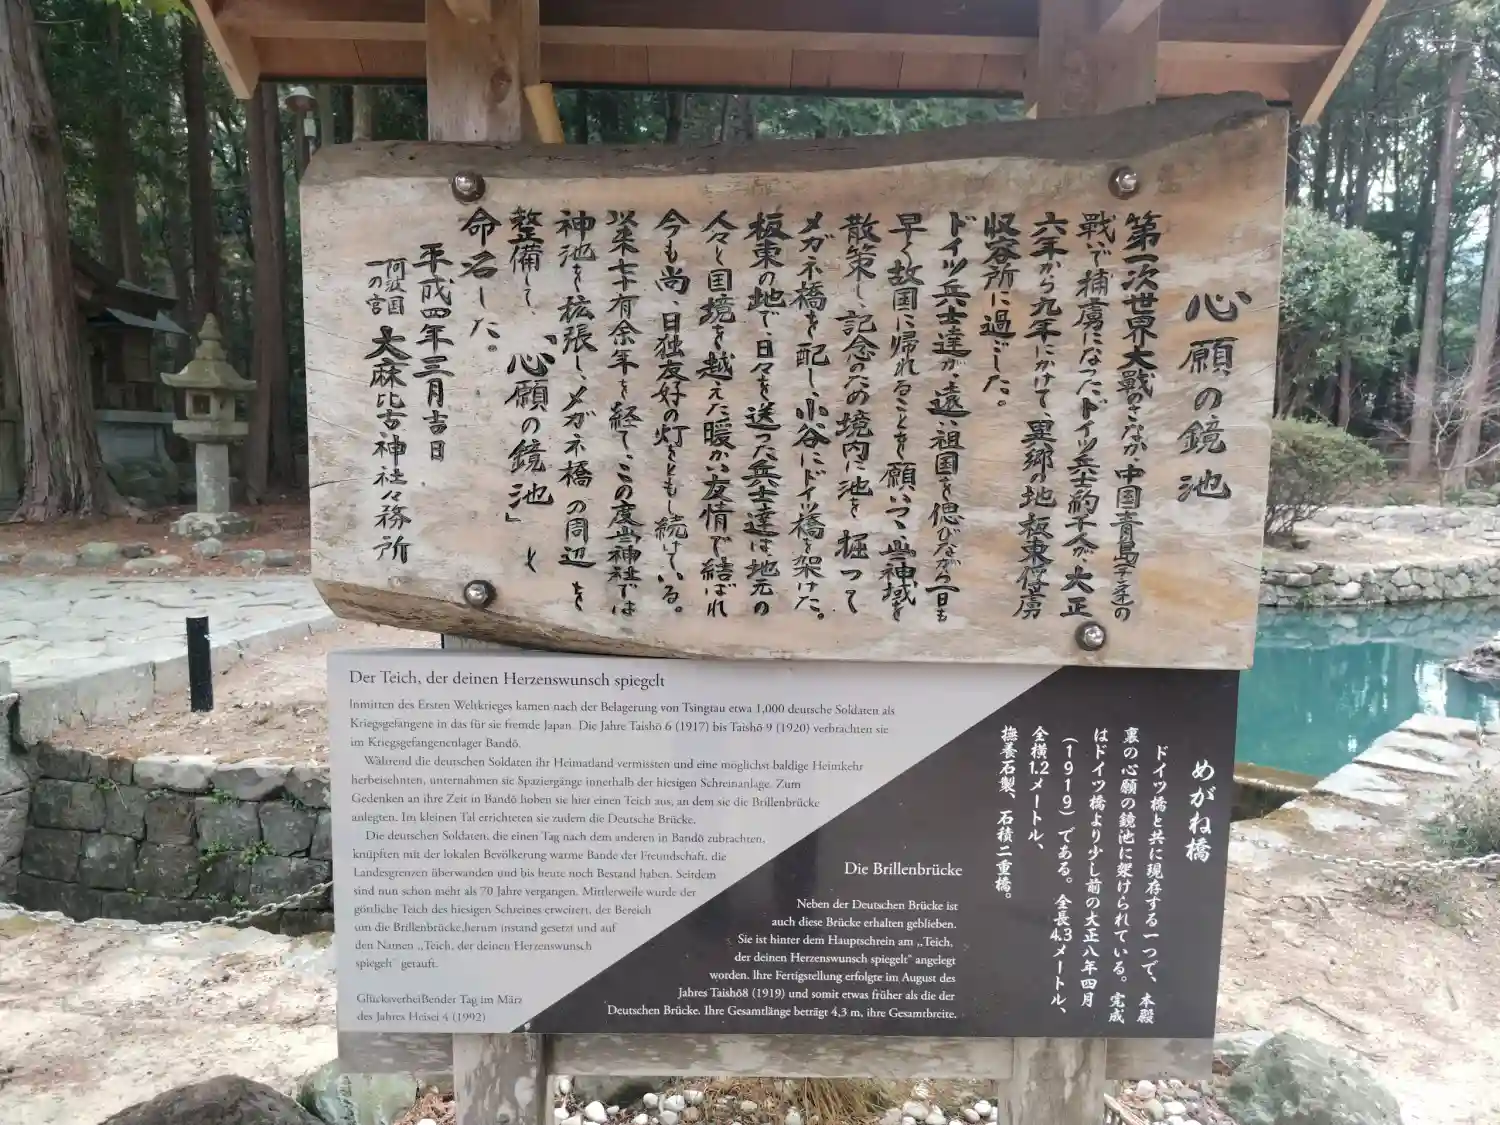 心願の鏡池
第一次世界大戰のさなか、中国青島(チンタオ)の
戰いで捕虜になったドイツ兵士約千人が、大正
六年から九年にかけて、異郷の地板東俘虜
収容所に過ごした。
ドイツ兵士達が、遠い祖国を偲びながら一日も
早く故国に帰れることを願いつつ、当神域を
散策し、記念のため境内に池を掘って
メガネ橋を配し、小谷にドイツ橋を架けた。
板東の地で、日々を送った兵士達は、地元の
人々と国境を越えた暖かい友情で結ばれ
今も尚、日独友好の灯をともし続けている。
以来七十有余年を経て、この度当神社では
神池を拡張し、メガネ橋の周辺をも
整備して、「心願の鏡池」と
命名した。
平成四年三月吉日
阿波国
一の宮 大麻比古神社々務所
Der Teich, der deinen Herzenswunsch spiegelt
Inmitten des Ersten Weltkrieges kamen nach der Belagerung von Tsingtau etwa 1,000 deutsche Soldaten als
Kriegsgefangene in das für sie fremde Japan. Die Jahre Taishō 6 (1917) bis Taishō 9 (1920) verbrachten sie
im Kriegsgefangenenlager Bandō.
Während die deutschen Soldaten ihr Heimatland vermissten und eine möglichst baldige Heimkehr
herbeisehnten, unternahmen sie Spaziergänge innerhalb der hiesigen Schreinanlage. Zum
Gedenken an ihre Zeit in Bandō hoben sie hier einen Teich aus, an dem sie die Brillenbrücke
anlegten. Im kleinen Tal errichteten sie zudem die Deutsche Brücke.
Die deutschen Soldaten, die einen Tag nach dem anderen in Bandō zubrachten,
knüpften mit der lokalen Bevölkerung warme Bande der Freundschaft, die
Landesgrenzen überwanden und bis heute noch Bestand haben. Seitdem
sind nun schon mehr als 70 Jahre vergangen. Mittlerweile wurde der
göttliche Teich des hiesigen Schreines erweitert, der Bereich
um die Brillenbrücke herum instand gesetzt und auf
den Namen „Teich, der deinen Herzenswunsch
spiegelt" getauft.
Glücksverheißender Tag im März
des Jahres Heisei 4 (1992)
めがね橋
ドイツ橋と共に現存する一つで、本殿
裏の心願の鏡池に架けられている。完成
はドイツ橋より少し前の大正八年四月
(1919)である。全長4.3メートル、
全横1.2メートル、
撫養石製、石積二重橋。
Die Brillenbrücke
Neben der Deutschen Brücke ist
auch diese Brücke erhalten geblieben.
Sie ist hinter dem Hauptschrein am „Teich,
der deinen Herzenswunsch spiegelt" angelegt
worden. Ihre Fertigstellung erfolgte im August des
Jahres Taishō8 (1919) und somit etwas früher als die der
Deutschen Brücke. Ihre Gesamtlänge beträgt 4,3 m, ihre Gesamtbreite.